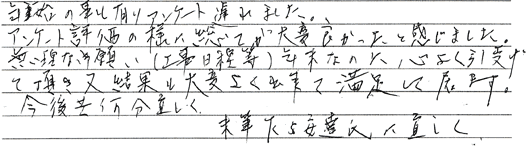 年末始の事も有りアンケート遅れました。
アンケート評価の様に総てが大変良かったと感じました。
無理なお願い(工事日程等)年末なのに心よく引受け
て頂き又結果も大変よく出来て満足して居ます。
今後共何分宜しく
末筆乍ら 氏に宜しく